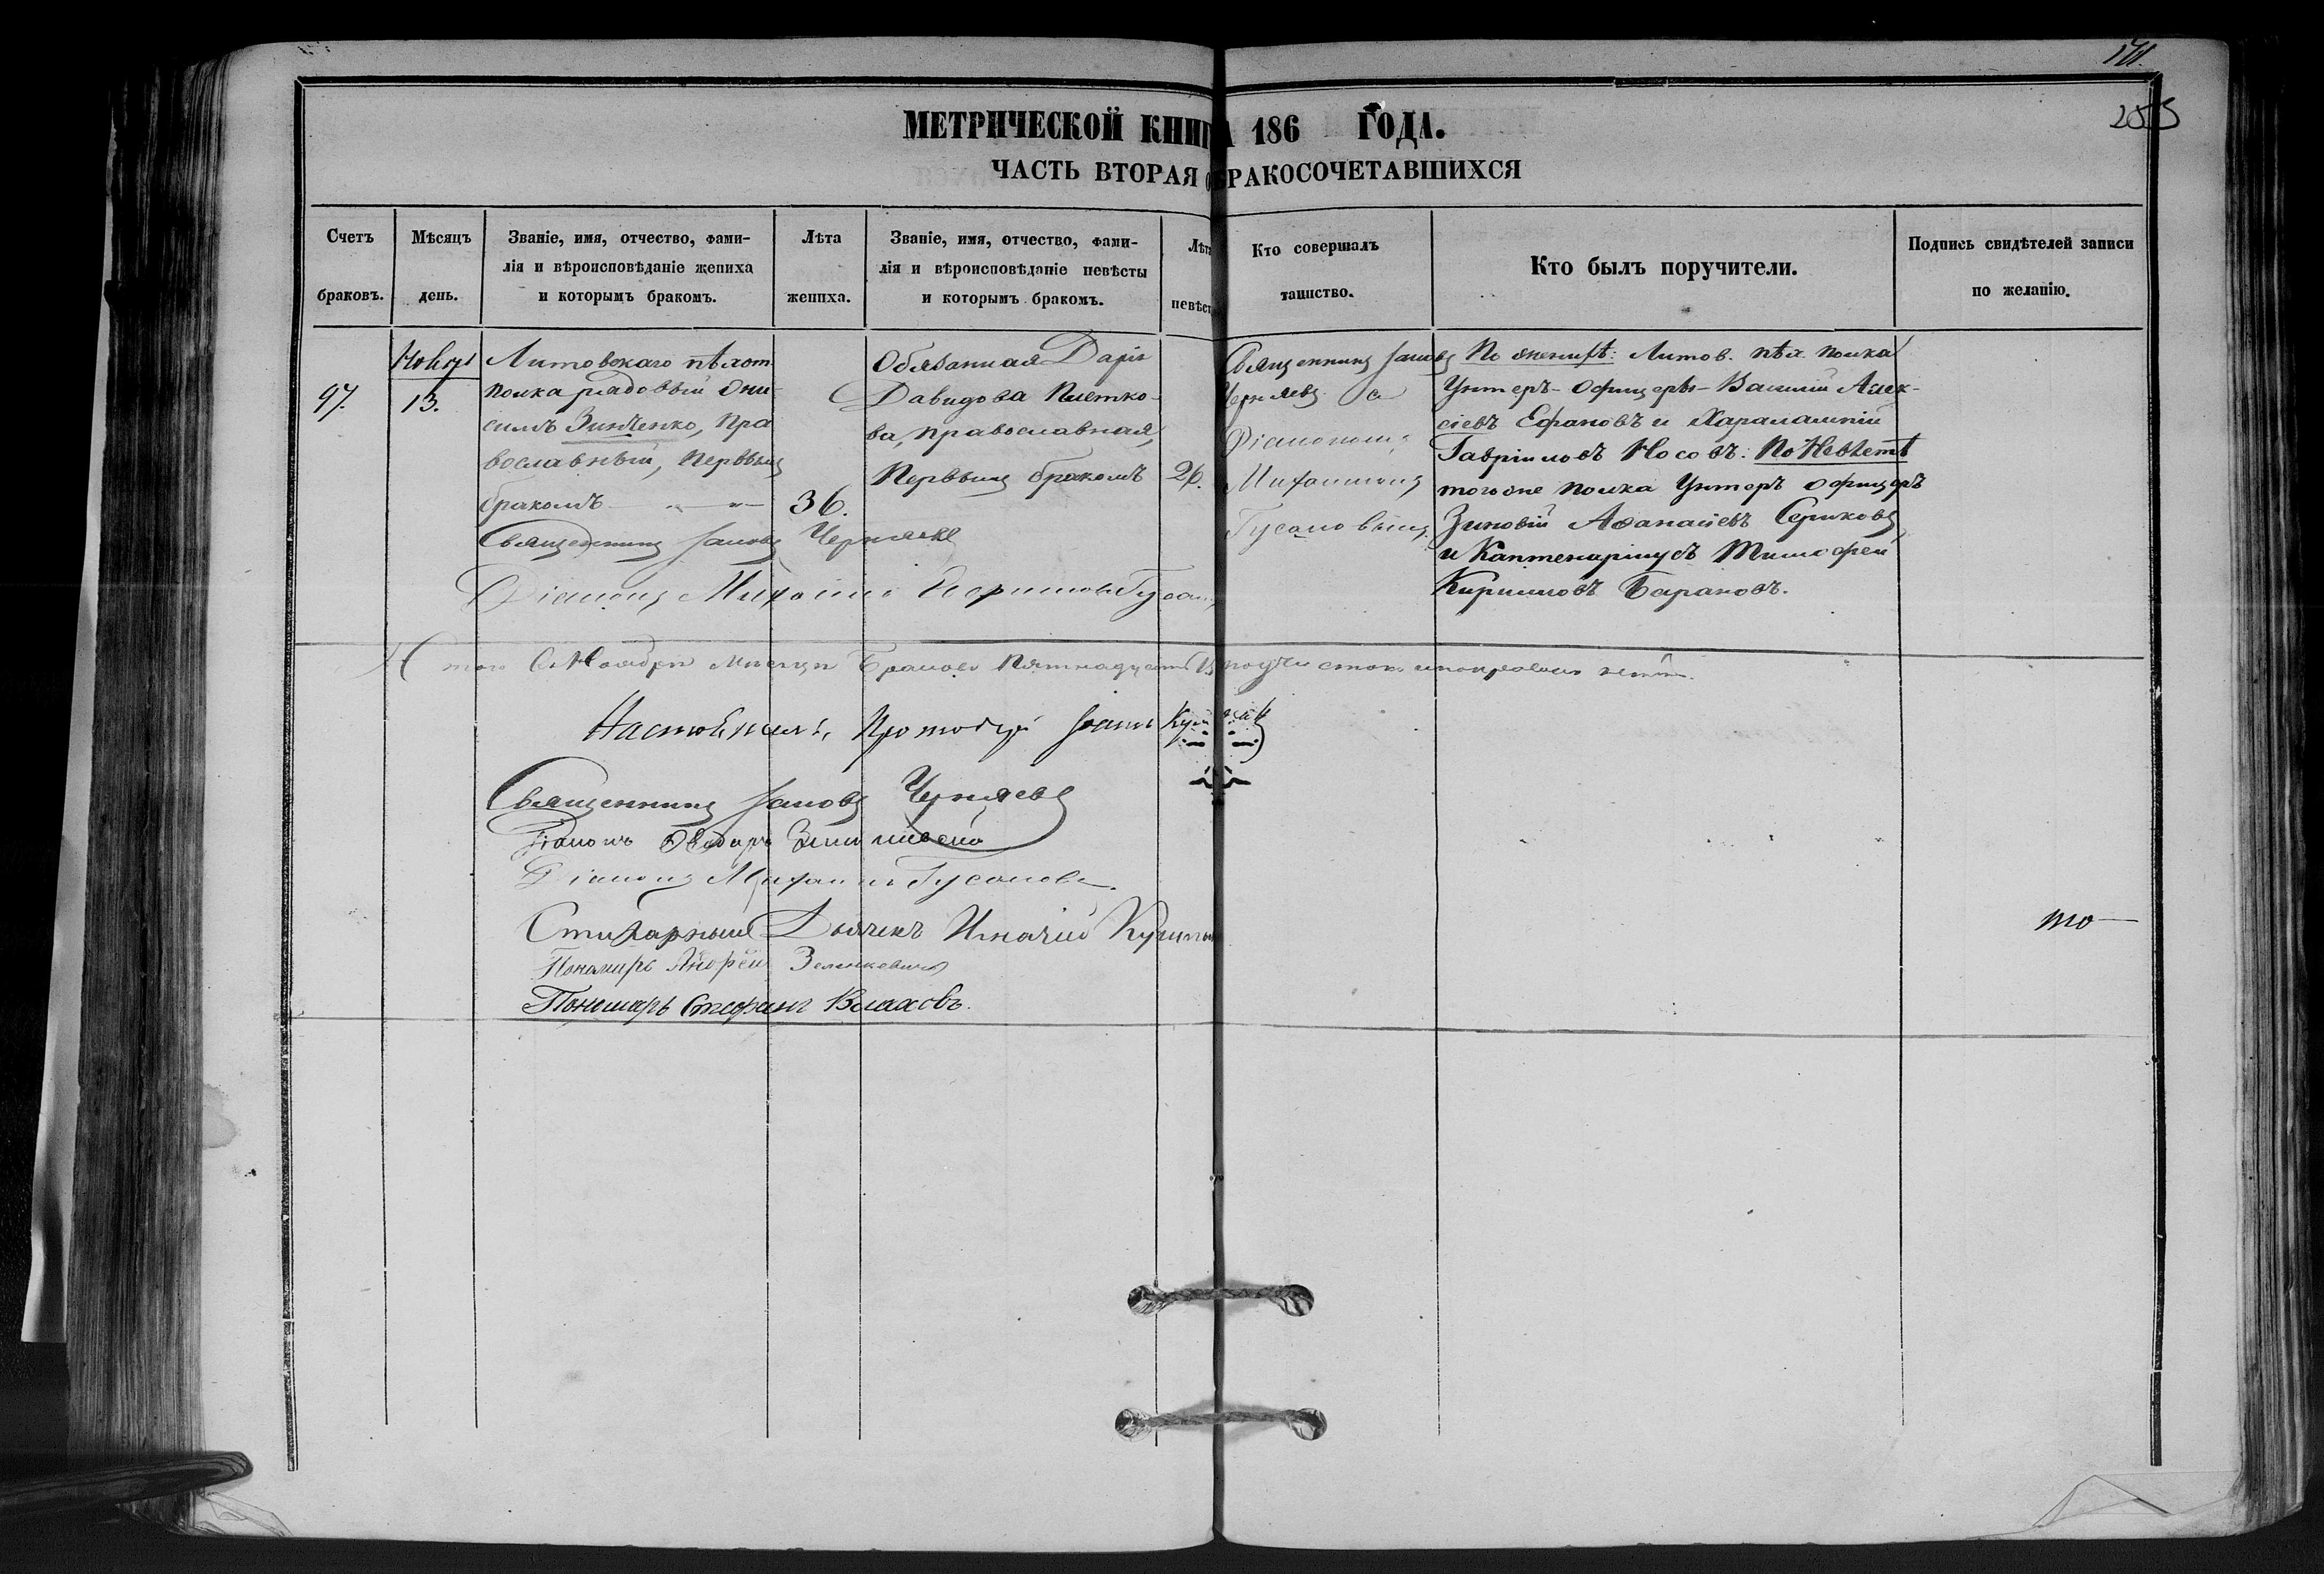 171.
255
МЕТРИЧЕСКОЙ КНИГА 186 ГОДА.
ЧАСТЬ ВТОРАЯ О БРАКОСОЧЕТАВШИХСЯ
Счетъ браковъ.
Мѣсяцъ день.
Званіе, имя, отчество, фами-
лія и вѣроисповѣданіе жениха
и которымъ бракомъ.
Лѣта жениха.
Званіе, имя, отчество, фами-
лія и вѣроисповѣданіе невѣсты
и которымъ бракомъ.
Лѣта невѣст
Кто совершалъ
таинство.
Кто былъ поручители.
Подпись свидѣтелей записи
по желанію.
97.
13.
Литовскаго пѣхот
полка рядовый Они-
симъ Зинченко, Пра
вославный, Первымъ
бракомъ
36.
Обязанная Дарія
Давидова Плетко-
ва, православная,
Первымъ бракомъ
26.
Священникъ Іаковъ
Черняевъ съ
Діакономъ
Михаиломъ
Гусаковымъ
По женихѣ: Литов. пѣх. полка
Унтеръ-Офицеръ-Василій Алек-
сіевъ Ефановъ и Харалампій
Гавріиловъ Носовъ: По Невѣстѣ
тогоже полка Унтеръ офицеръ
Зиновій Аѳанасіевъ Сериковъ
и Каптенармусъ Тимофей
Кирилловъ Барановъ.
Священникъ Іаковъ Черняевъ
Діаконъ Михаилъ
Итого въ Ноябрѣ мѣсяцѣ Браковъ Пятнадцать
Настоятель, Протоіерей Іоаннъ
Священникъ Іаковъ Черняевъ
Діаконъ
Діаконъ Михаилъ Гусаковъ.
Стихарный Дьячекъ Игнатій
Пономарь Андрей Зеленкевичъ
Пономарь Стефанъ Власовъ.